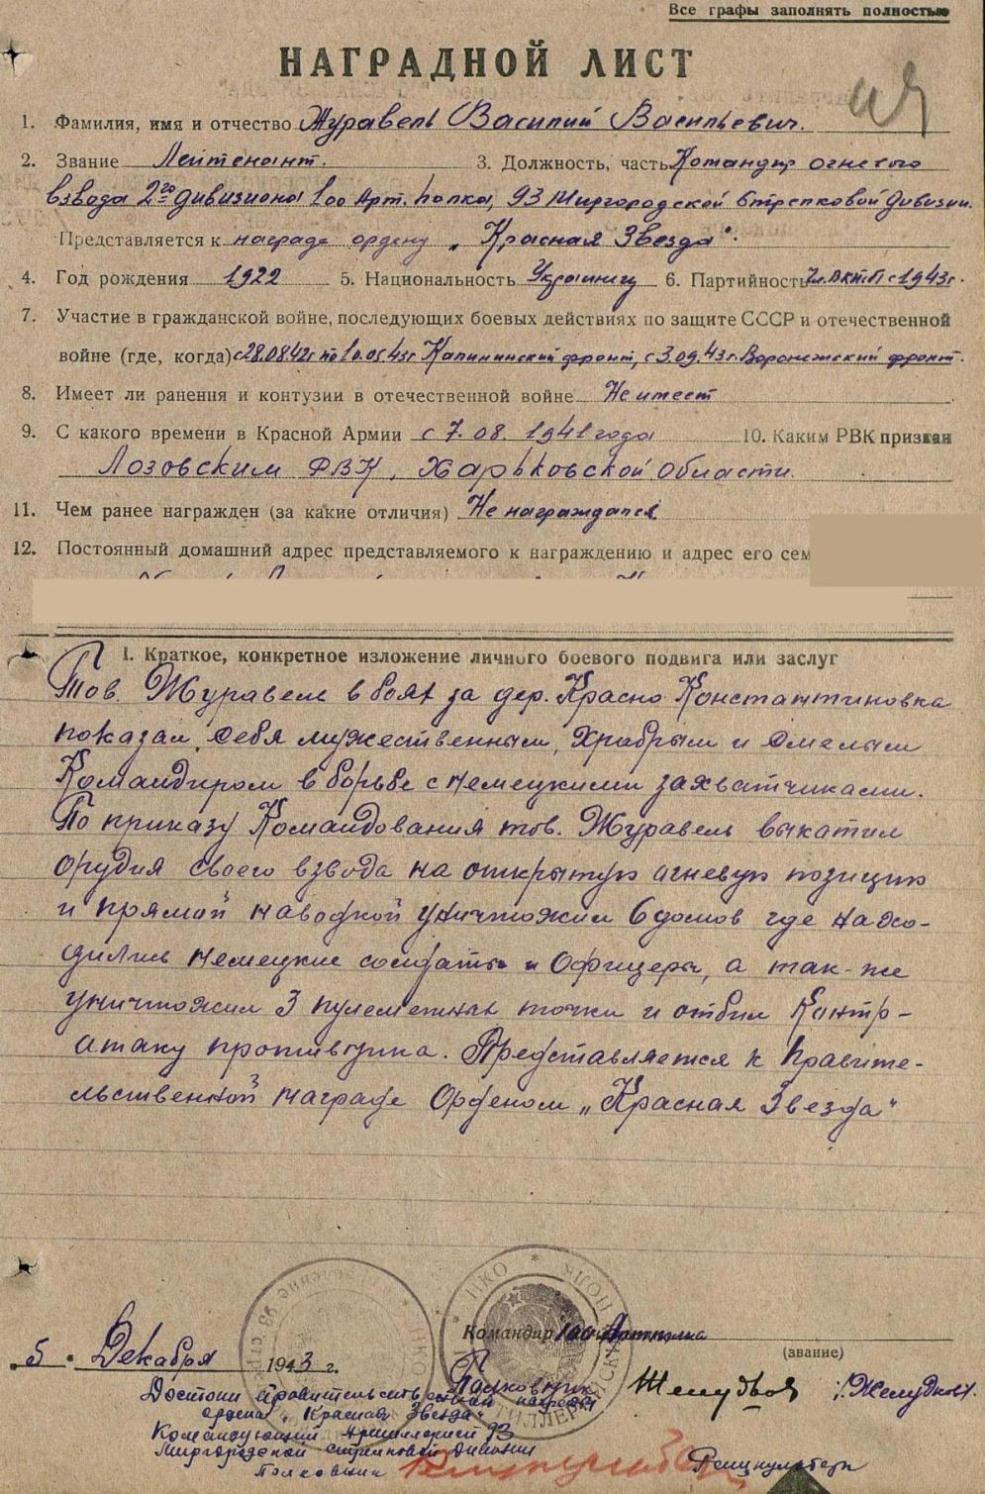 Все графы заполнять полностью
НАГРАДНОЙ ЛИСТ
1. Фамилия, имя и отчество Журавель Василий Васильевич.
2. Звание Лейтенант. 3. Должность, часть Командир огневого
взвода 2го дивизиона 100 Арт. полка, 93 Миргородской стрелковой дивизии.
Представляется к награде ордену „Красная Звезда".
4. Год рождения 1922 5. Национальность Украинец 6. Партийность Чл. ВКП(б) с 1943г.
7. Участие в гражданской войне, последующих боевых действиях по защите СССР и отечественной
войне (где, когда) с 28.08.42г. по 10.05.43г. Калининский фронт, с 3.09.43г. Воронежский фронт.
8. Имеет ли ранения и контузии в отечественной войне Не имеет
9. С какого времени в Красной Армии с 7.08.1941 года 10. Каким РВК призван
Лозовским РВК, Харьковской области.
11. Чем ранее награжден (за какие отличия) Не награждался
12. Постоянный домашний адрес представляемого к награждению и адрес его сем
I. Краткое, конкретное изложение личного боевого подвига или заслуг
Тов. Журавель в боях за дер. Красно Константиновка
показал себя мужественным, храбрым и смелым
Командиром в борьбе с немецкими захватчиками.
По приказу Командования тов. Журавель выкатил
орудия своего взвода на открытую огневую позицию
и прямой наводкой уничтожил 6 домов где нахо-
дились немецкие солдаты и офицеры, а так-же
уничтожил 3 пулеметных точки и отбил Контр-
атаку противника. Представляется к Правите-
льственной награде Орденом „Красная Звезда"
Командир 100 Артполка
(звание)
„5" Декабря 1943 г.
Полковник
Достоин правительственной награды
ордена „Красная Звезда"
Командующий Артиллерией 93
Миргородской стрелковой дивизии
Полковник